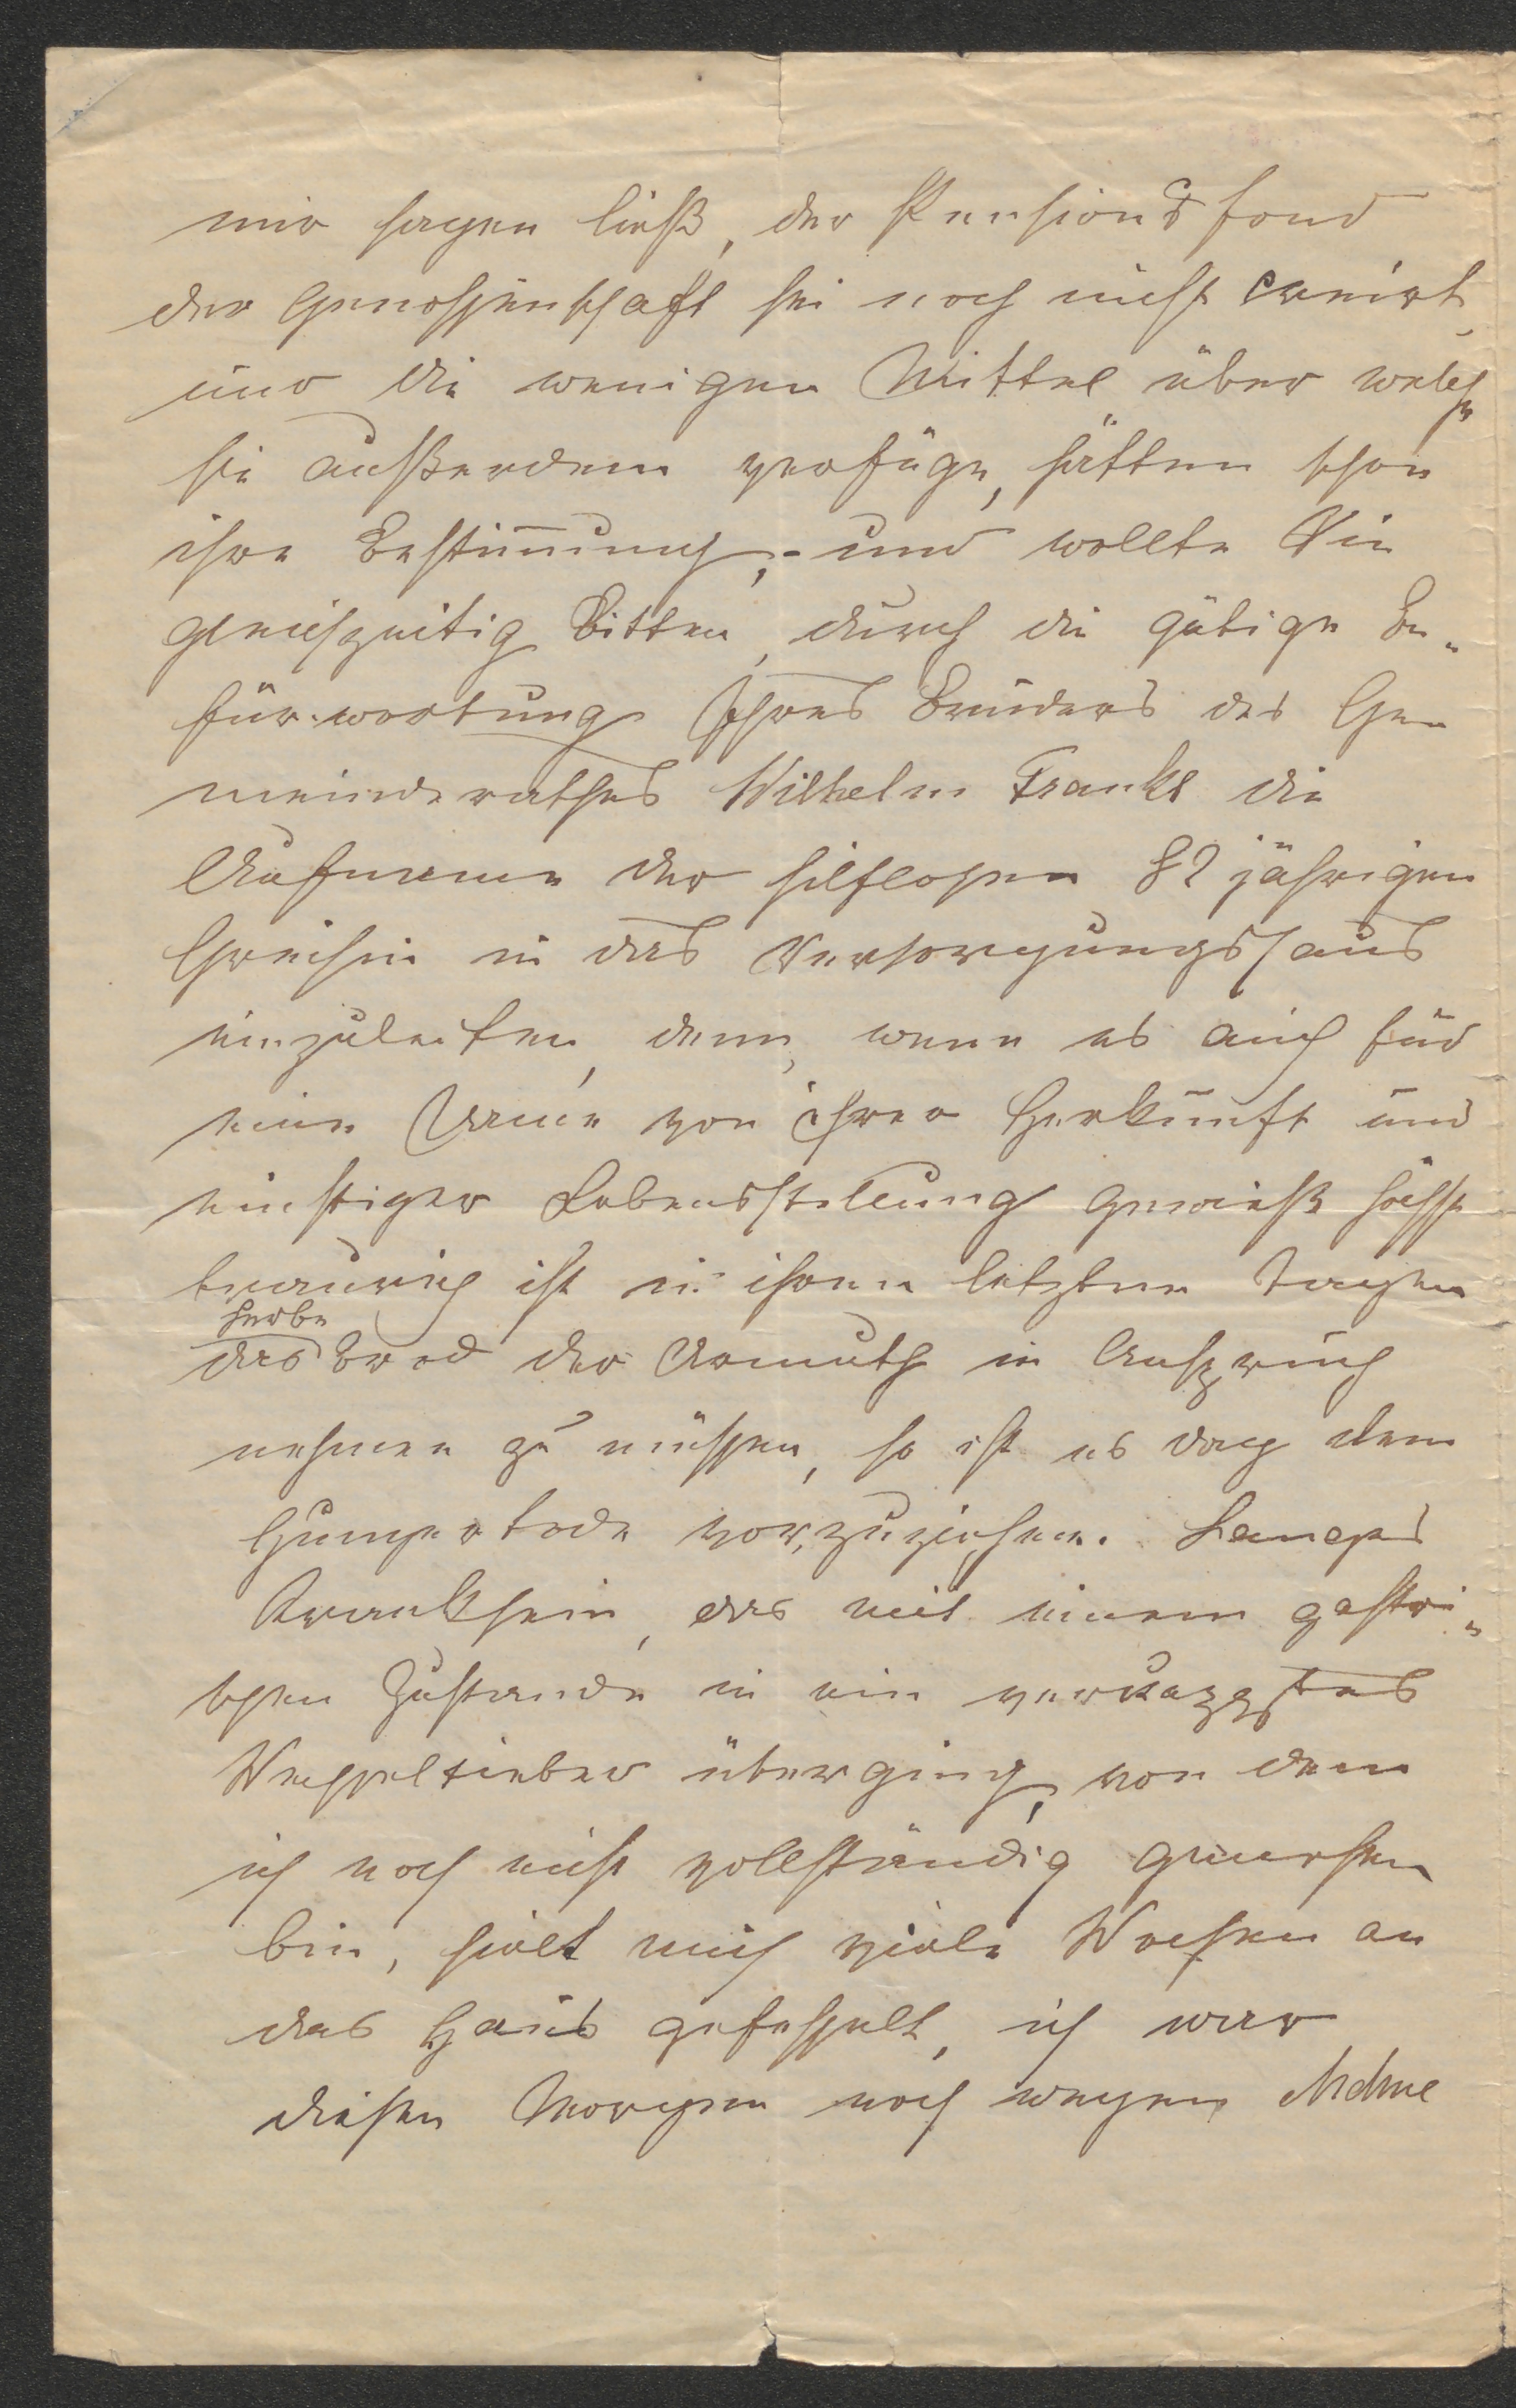 mir sagen ließ, der Pensionsfond
der Genossenschaft sei noch nicht creirt,
und die wenigen Mittel über welche
sie außerdem verfüge, hätten schon
ihre Bestimmung, - und wollte Sie
gleichzeitig bitten, durch die gütige Be„
fürwortung Ihres Bruders des Ge„
meinderathes Wilhelm Frankl die
Aufname der hilflosen 82 jährigen
Greisin in das Versorgungshaus
einzuleiten, denn, wenn es auch für
eine Arme von ihrer Herkunft und
einstiger Lebensstellung gewiß höchst
traurig ist in ihren letzten Tagen
herbe
das Brod der Armuth in Anspruch
nehmen zu müssen, so ist es doch dem
Hungertode vorzuziehen. Langes
Kranksein, das mit einem gastri„
schen Zustande in ein verkapptes
Wechselfieber überging, von dem
ich noch nicht vollständig genesen
bin, hielt mich viele Wochen an
das Haus gefesselt, ich war
diesen Morgen noch wegen Mdme